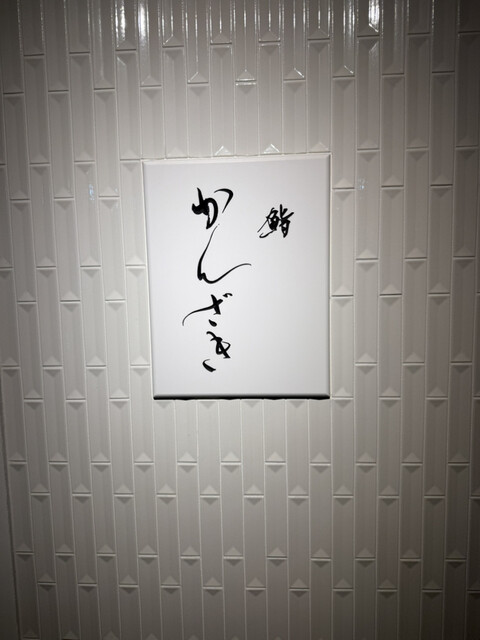 鮨
かんざき